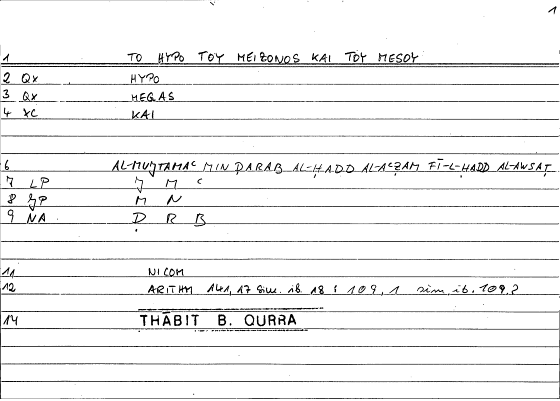 1
1 TO HYPO TOY MEIZONOS KAI TOY MESOY
2 QX HYPO
3 QX MEGAS
4 XC KAI
6 AL-MUǦTAMAᶜ MIN ḌARAB AL-ḤADD AL-AᶜẒAM FĪ-L-ḤADD AL-AWSAṬ
7 LP Ǧ M ᶜ
8 M N
9 NA Ḍ R B
11 NICOM
12 ARITHM 141, 17 sim. ib. 18 ; 109, 1 sim. ib. 109,
14 THĀBIT B. QURRA